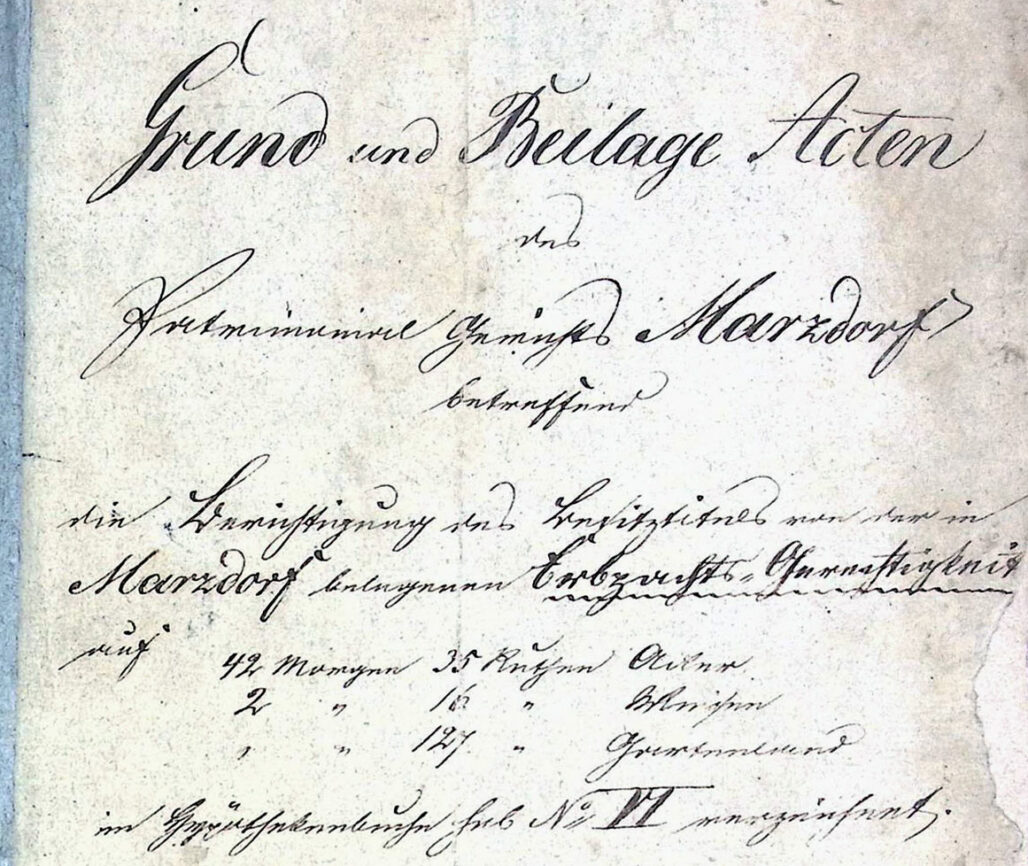 Grund und Beilage Acten
des
Patrimonial Gerichts Marzdorf
betreffend
die Berichtigung des Besitztitels von der in
Marzdorf belegenen Erbpachts-Gerechtigkeit
auf
42 Morgen 35 Ruthen Acker
2 " 16 " Wiesen
" " 127 " Gartenland
im Hypothekenbuche sub No VI verzeichnet.